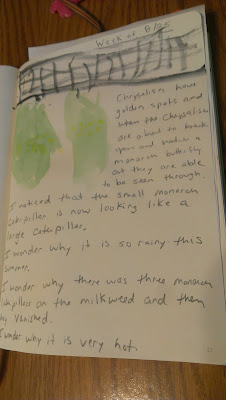 Week of 8/25
Chrysalises have
golden spots and
when the Chrysalises
are about to break
open and
monarch butterfly
out they are able
to be seen through.
I noticed that the small monarch
Caterpiller is now looking like a
large Caterpiller.
I wonder why it is so rainy this
Summer.
I wonder why there was three monarch
Catepillers on the milkweed and then
they vanished.
I wonder why it is very hot.